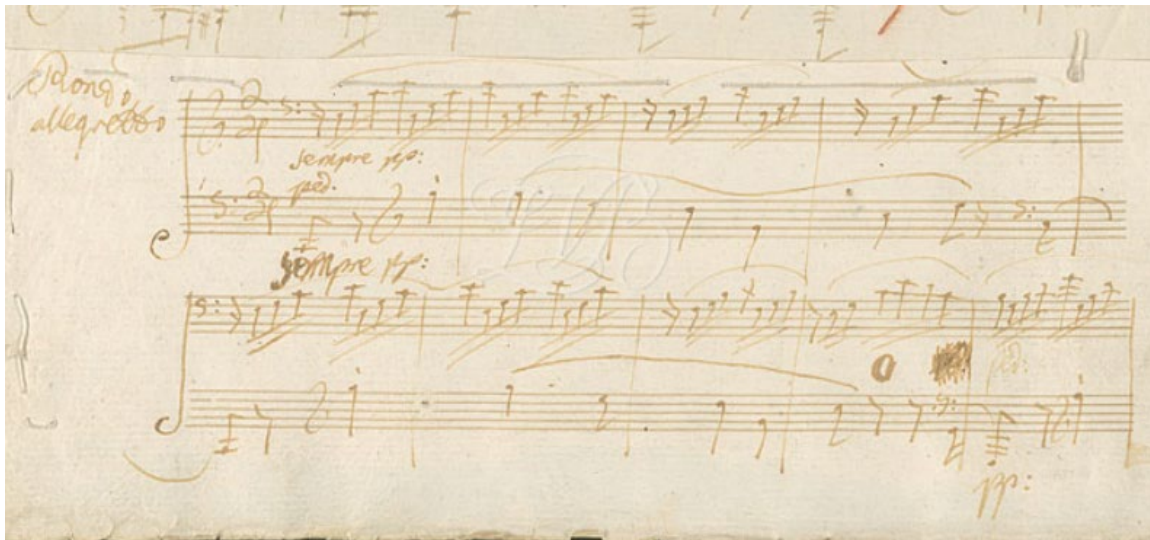 Rondo
allegretto
2 2
4 4
sempre pp:
ped.
2
4
sempre pp:
O
pp: